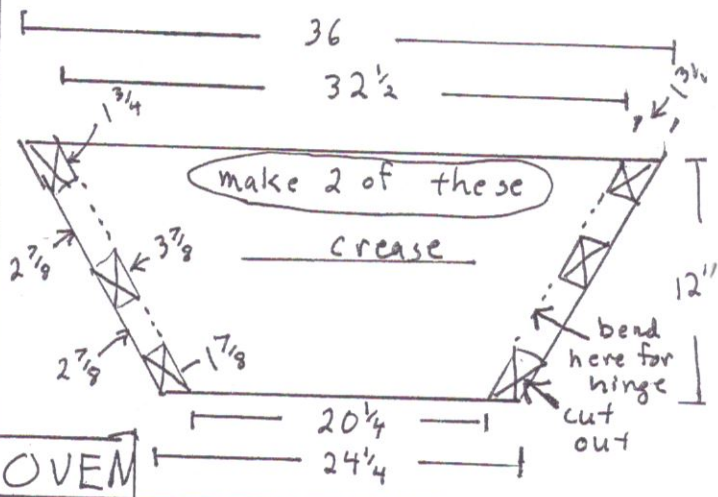 36
32 ½
1 ¾
make 2 of these
crease
2 ⅞
3 ⅞
12"
2 ⅞
1 ⅞
bend
here for
hinge
cut
out
20 ¼
24 ¼
OVEN